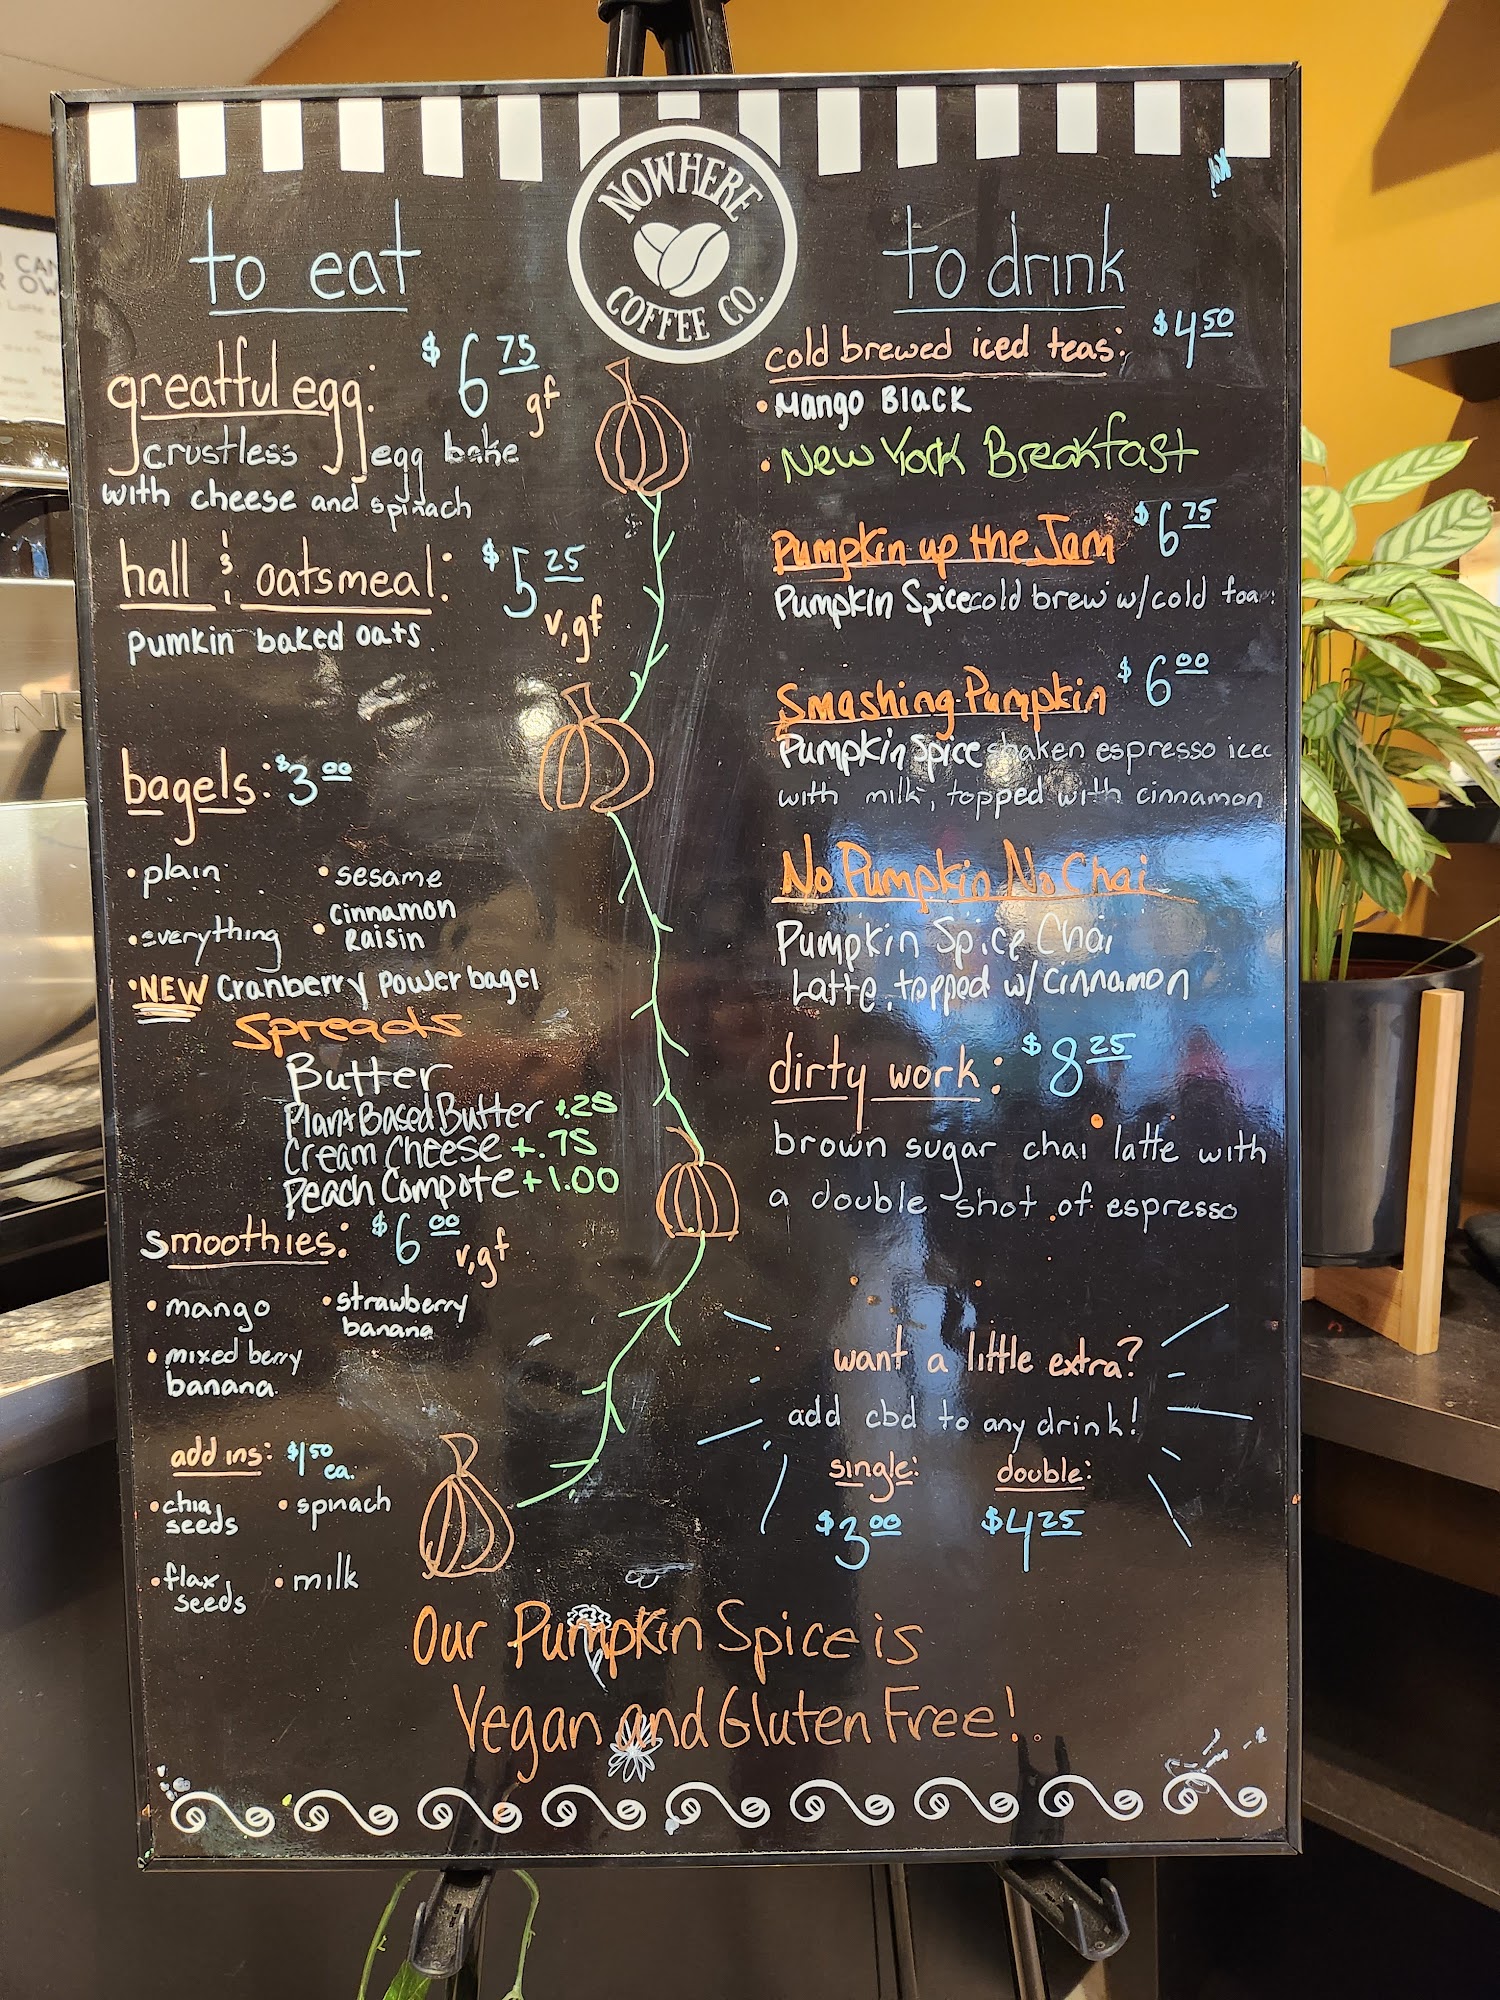 NOWHERE
COFFEE CO.
to eat
greatful egg: $6.75
gf
crustless egg bake
with cheese and spinach
hall & oatsmeal: $5.25
v, gf
pumkin baked oats
bagels: $3.00
• plain
• sesame
• everything
• cinnamon
Raisin
• NEW Cranberry Power bagel
Spreads
Butter
Plant Based Butter +.25
Cream Cheese +.75
Peach Compote +1.00
smoothies: $6.00
v, gf
• mango
• strawberry
banana
• mixed berry
banana
add ins: $1.50
ea.
• chia
seeds
• spinach
• flax
seeds
• milk
to drink
cold brewed iced teas: $4.50
• Mango Black
• New York Breakfast
Pumpkin up the Jam $6.75
Pumpkin Spice cold brew w/ cold foa
Smashing Pumpkin $6.00
Pumpkin Spice shaken espresso iced
with milk, topped with cinnamon
No Pumpkin No Chai
Pumpkin Spice Chai
Latte, topped w/ cinnamon
dirty work: $8.25
brown sugar chai latte with
a double shot of espresso
want a little extra?
add cbd to any drink!
single: double:
$3.00 $4.25
Our Pumpkin Spice is
Vegan and Gluten Free!